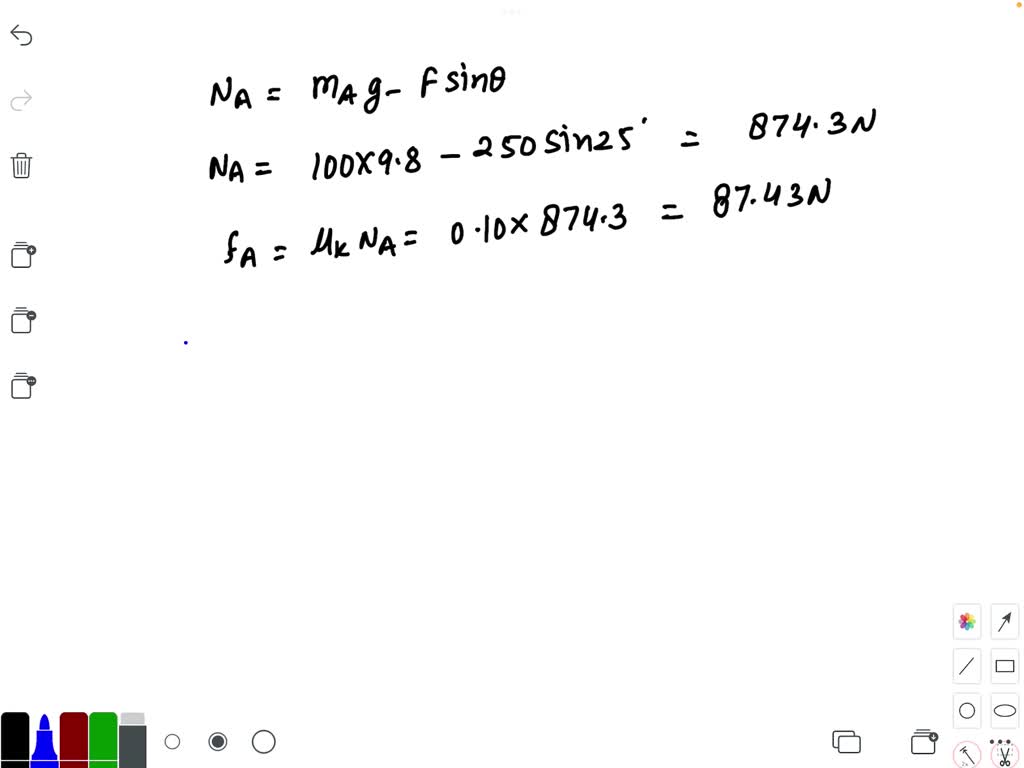 N_A = m_A g - F sinθ
N_A = 100×9.8 - 250 sin25° = 874.3N
f_A = μ_k N_A = 0.10 × 874.3 = 87.43N